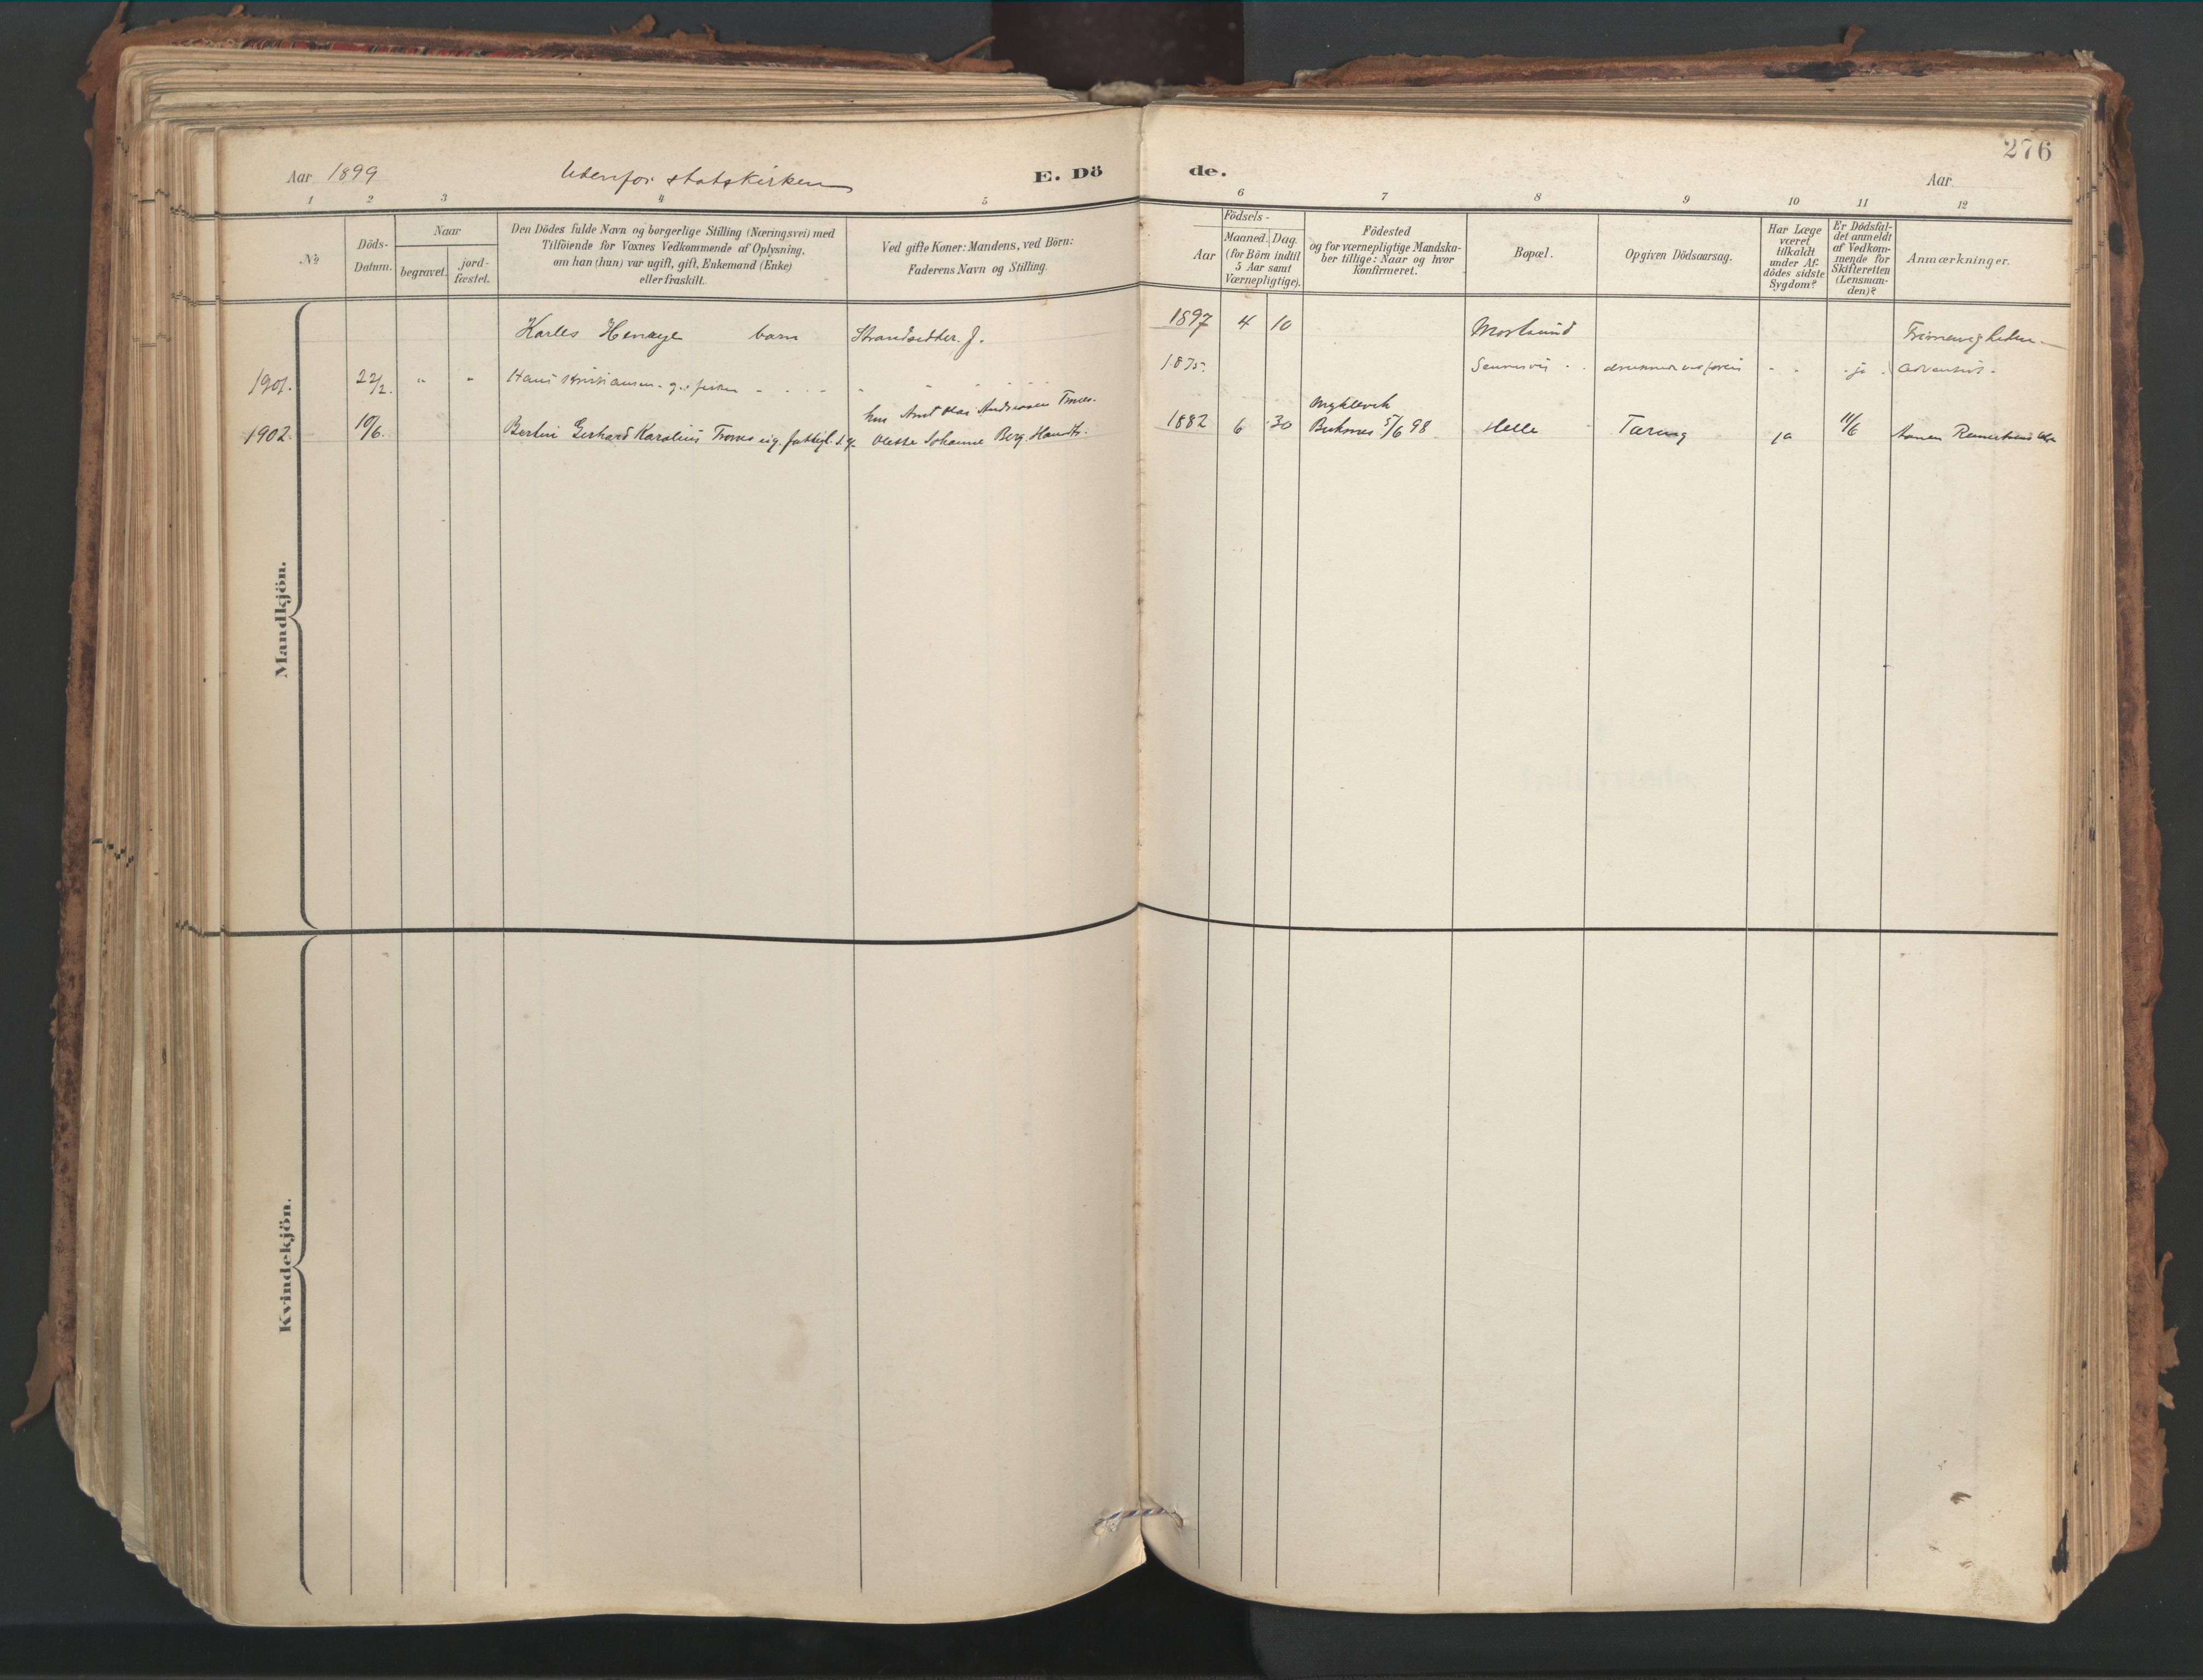 276
Aar 1899 Utenfor statskirken E. Dö de. Aar
1 2 3 4 5 6 7 8 9 10 11 12
No
Döds-
Datum.
Naar
begravet.
jord-
fæstet.
Den Dödes fulde Navn og borgerlige Stilling (Næringsvei) med
Tilföiende for Voxnes Vedkommende af Oplysning,
om han (hun) var ugift, gift, Enkemand (Enke)
eller fraskilt.
Ved gifte Koner: Mandens, ved Börn:
Faderens Navn og Stilling.
Födsels-
Aar
Maaned. Dag.
(for Börn indtil
5 Aar samt
Værnepligtige).
Födested
og for værnepligtige Mandska-
ber tillige: Naar og hvor
konfirmeret.
Bopæl.
Opgiven Dödsaarsag.
Har Læge
været
tilkaldt
under Af-
dödes sidste
Sygdom?
Er Dödsfal-
det anmeldt
af Vedkom-
mende for
Skifteretten
(Lensman-
den)?
Anmærkninger.
Karles barn Strandsidder. J. 1897 4 10 Mortsund
1901. 22/2. " " Hans Kristiansen - g. fisker 1875. ja adventist
Arnt Olai Andreassen
1902 10/6. Gerhard Karolius Olette Johanne Berg. 1882 6 30 Buksnes 5/6 98 Helle Tæring ja 11/6
Mandkjön.
Kvindekjön.